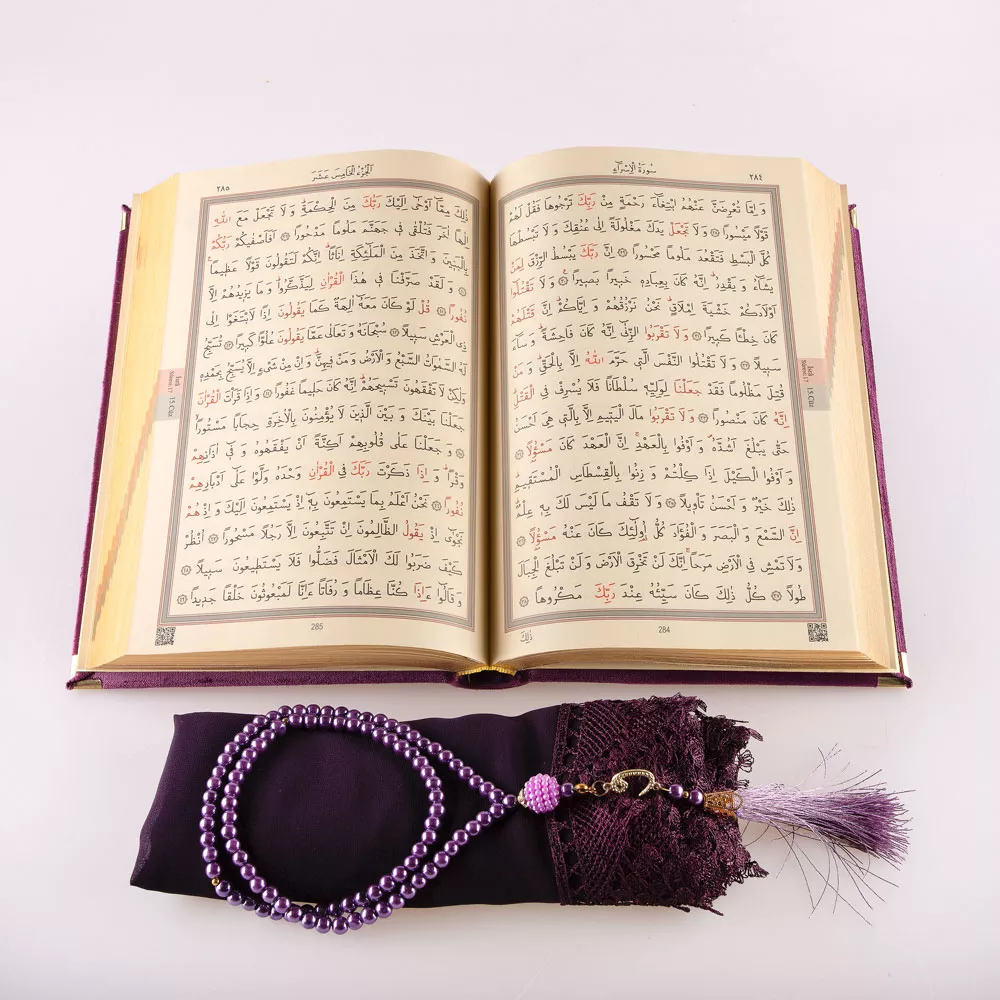 سُورَةُ الْاِسْرَٓاءِ
٢٨٤
وَ اِمَّا تُعْرِضَنَّ عَنْهُمُ ابْتِغَٓاءَ رَحْمَةٍ مِنْ رَبِّكَ تَرْجُوهَا فَقُلْ لَهُمْ
قَوْلًا مَيْسُورًا ﴿٢٨﴾ وَ لَا تَجْعَلْ يَدَكَ مَغْلُولَةً اِلٰى عُنُقِكَ وَ لَا تَبْسُطْهَا
كُلَّ الْبَسْطِ فَتَقْعُدَ مَلُومًا مَحْسُورًا ﴿٢٩﴾ اِنَّ رَبَّكَ يَبْسُطُ الرِّزْقَ لِمَنْ
يَشَٓاءُ وَ يَقْدِرُ اِنَّهُ كَانَ بِعِبَادِهٖ خَبِيرًا بَصِيرًا ﴿٣٠﴾ وَ لَا تَقْتُلُٓوا
اَوْلَادَكُمْ خَشْيَةَ اِمْلَاقٍ نَحْنُ نَرْزُقُهُمْ وَ اِيَّاكُمْ اِنَّ قَتْلَهُمْ
كَانَ خِطْـًٔا كَبِيرًا ﴿٣١﴾ وَ لَا تَقْرَبُوا الزِّنٰٓى اِنَّهُ كَانَ فَاحِشَةً وَ سَٓاءَ
سَبِيلًا ﴿٣٢﴾ وَ لَا تَقْتُلُوا النَّفْسَ الَّتٖى حَرَّمَ اللّٰهُ اِلَّا بِالْحَقِّ وَ مَنْ
قُتِلَ مَظْلُومًا فَقَدْ جَعَلْنَا لِوَلِيِّهٖ سُلْطَانًا فَلَا يُسْرِفْ فِى الْقَتْلِ
اِنَّهُ كَانَ مَنْصُورًا ﴿٣٣﴾ وَ لَا تَقْرَبُوا مَالَ الْيَتٖيمِ اِلَّا بِالَّتٖى هِىَ اَحْسَنُ
حَتّٰى يَبْلُغَ اَشُدَّهُ وَ اَوْفُوا بِالْعَهْدِ اِنَّ الْعَهْدَ كَانَ مَسْؤُلًا ﴿٣٤﴾
وَ اَوْفُوا الْكَيْلَ اِذَا كِلْتُمْ وَ زِنُوا بِالْقِسْطَاسِ الْمُسْتَقٖيمِ
ذٰلِكَ خَيْرٌ وَ اَحْسَنُ تَاْوٖيلًا ﴿٣٥﴾ وَ لَا تَقْفُ مَا لَيْسَ لَكَ بِهٖ عِلْمٌ
اِنَّ السَّمْعَ وَ الْبَصَرَ وَ الْفُؤَادَ كُلُّ اُولٰٓئِكَ كَانَ عَنْهُ مَسْؤُلًا ﴿٣٦﴾
وَ لَا تَمْشِ فِى الْاَرْضِ مَرَحًا اِنَّكَ لَنْ تَخْرِقَ الْاَرْضَ وَ لَنْ تَبْلُغَ الْجِبَالَ
طُولًا ﴿٣٧﴾ كُلُّ ذٰلِكَ كَانَ سَيِّئُهُ عِنْدَ رَبِّكَ مَكْرُوهًا ﴿٣٨﴾
ذٰلِكَ
284
İsrâ
Sûresi 17
15. Cüz
اَلْجُزْءُ الْخَامِسَ عَشَرَ
٢٨٥
ذٰلِكَ مِمَّٓا اَوْحٰٓى اِلَيْكَ رَبُّكَ مِنَ الْحِكْمَةِ وَ لَا تَجْعَلْ مَعَ اللّٰهِ
اِلٰهًا اٰخَرَ فَتُلْقٰى فٖى جَهَنَّمَ مَلُومًا مَدْحُورًا ﴿٣٩﴾ اَفَاَصْفٰيكُمْ رَبُّكُمْ
بِالْبَنٖينَ وَ اتَّخَذَ مِنَ الْمَلٰٓئِكَةِ اِنَاثًا اِنَّكُمْ لَتَقُولُونَ قَوْلًا عَظٖيمًا
﴿٤٠﴾ وَ لَقَدْ صَرَّفْنَا فٖى هٰذَا الْقُرْاٰنِ لِيَذَّكَّرُوا وَ مَا يَزٖيدُهُمْ اِلَّا
نُفُورًا ﴿٤١﴾ قُلْ لَوْ كَانَ مَعَهُٓ اٰلِهَةٌ كَمَا يَقُولُونَ اِذًا لَابْتَغَوْا اِلٰى
ذِى الْعَرْشِ سَبٖيلًا ﴿٤٢﴾ سُبْحَانَهُ وَ تَعَالٰى عَمَّا يَقُولُونَ عُلُوًّا كَبٖيرًا ﴿٤٣﴾ تُسَبِّحُ
لَهُ السَّمٰوَاتُ السَّبْعُ وَ الْاَرْضُ وَ مَنْ فٖيهِنَّ وَ اِنْ مِنْ شَىْءٍ اِلَّا يُسَبِّحُ بِحَمْدِهٖ
وَ لٰكِنْ لَا تَفْقَهُونَ تَسْبٖيحَهُمْ اِنَّهُ كَانَ حَلٖيمًا غَفُورًا ﴿٤٤﴾ وَ اِذَا قَرَاْتَ الْقُرْاٰنَ
جَعَلْنَا بَيْنَكَ وَ بَيْنَ الَّذٖينَ لَا يُؤْمِنُونَ بِالْاٰخِرَةِ حِجَابًا مَسْتُورًا
﴿٤٥﴾ وَ جَعَلْنَا عَلٰى قُلُوبِهِمْ اَكِنَّةً اَنْ يَفْقَهُوهُ وَ فٖٓى اٰذَانِهِمْ
وَقْرًا وَ اِذَا ذَكَرْتَ رَبَّكَ فِى الْقُرْاٰنِ وَحْدَهُ وَلَّوْا عَلٰٓى اَدْبَارِهِمْ
نُفُورًا ﴿٤٦﴾ نَحْنُ اَعْلَمُ بِمَا يَسْتَمِعُونَ بِهٖٓ اِذْ يَسْتَمِعُونَ اِلَيْكَ وَ اِذْ هُمْ
نَجْوٰٓى اِذْ يَقُولُ الظَّالِمُونَ اِنْ تَتَّبِعُونَ اِلَّا رَجُلًا مَسْحُورًا ﴿٤٧﴾ اُنْظُرْ
كَيْفَ ضَرَبُوا لَكَ الْاَمْثَالَ فَضَلُّوا فَلَا يَسْتَطٖيعُونَ سَبٖيلًا ﴿٤٨﴾
وَ قَالُٓوا ءَاِذَا كُنَّا عِظَامًا وَ رُفَاتًا ءَاِنَّا لَمَبْعُوثُونَ خَلْقًا جَدٖيدًا ﴿٤٩﴾
285
İsrâ
Sûresi 17
15. Cüz